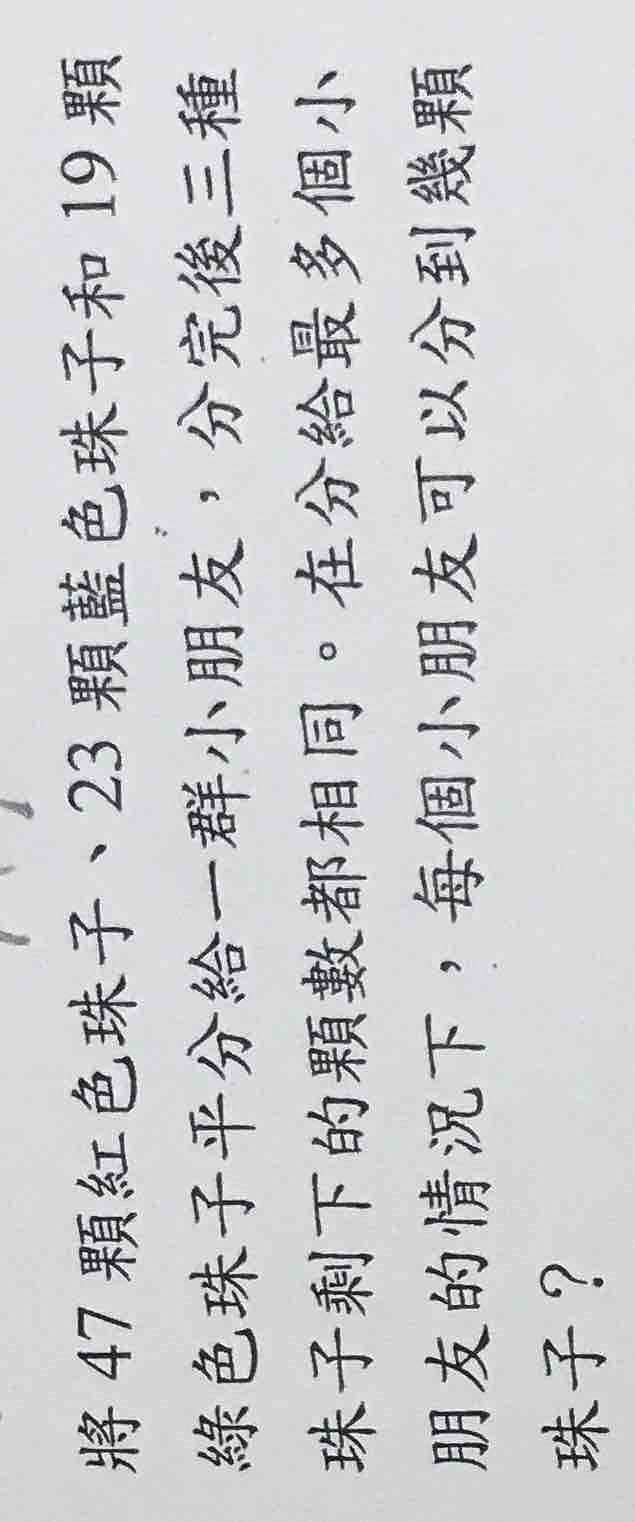 將 47 顆紅色珠子、23 顆藍色珠子和 19 顆
綠色珠子平分給一群小朋友，分完後三種
珠子剩下的顆數都相同。在分給最多個小
朋友的情況下，每個小朋友可以分到幾顆
珠子？